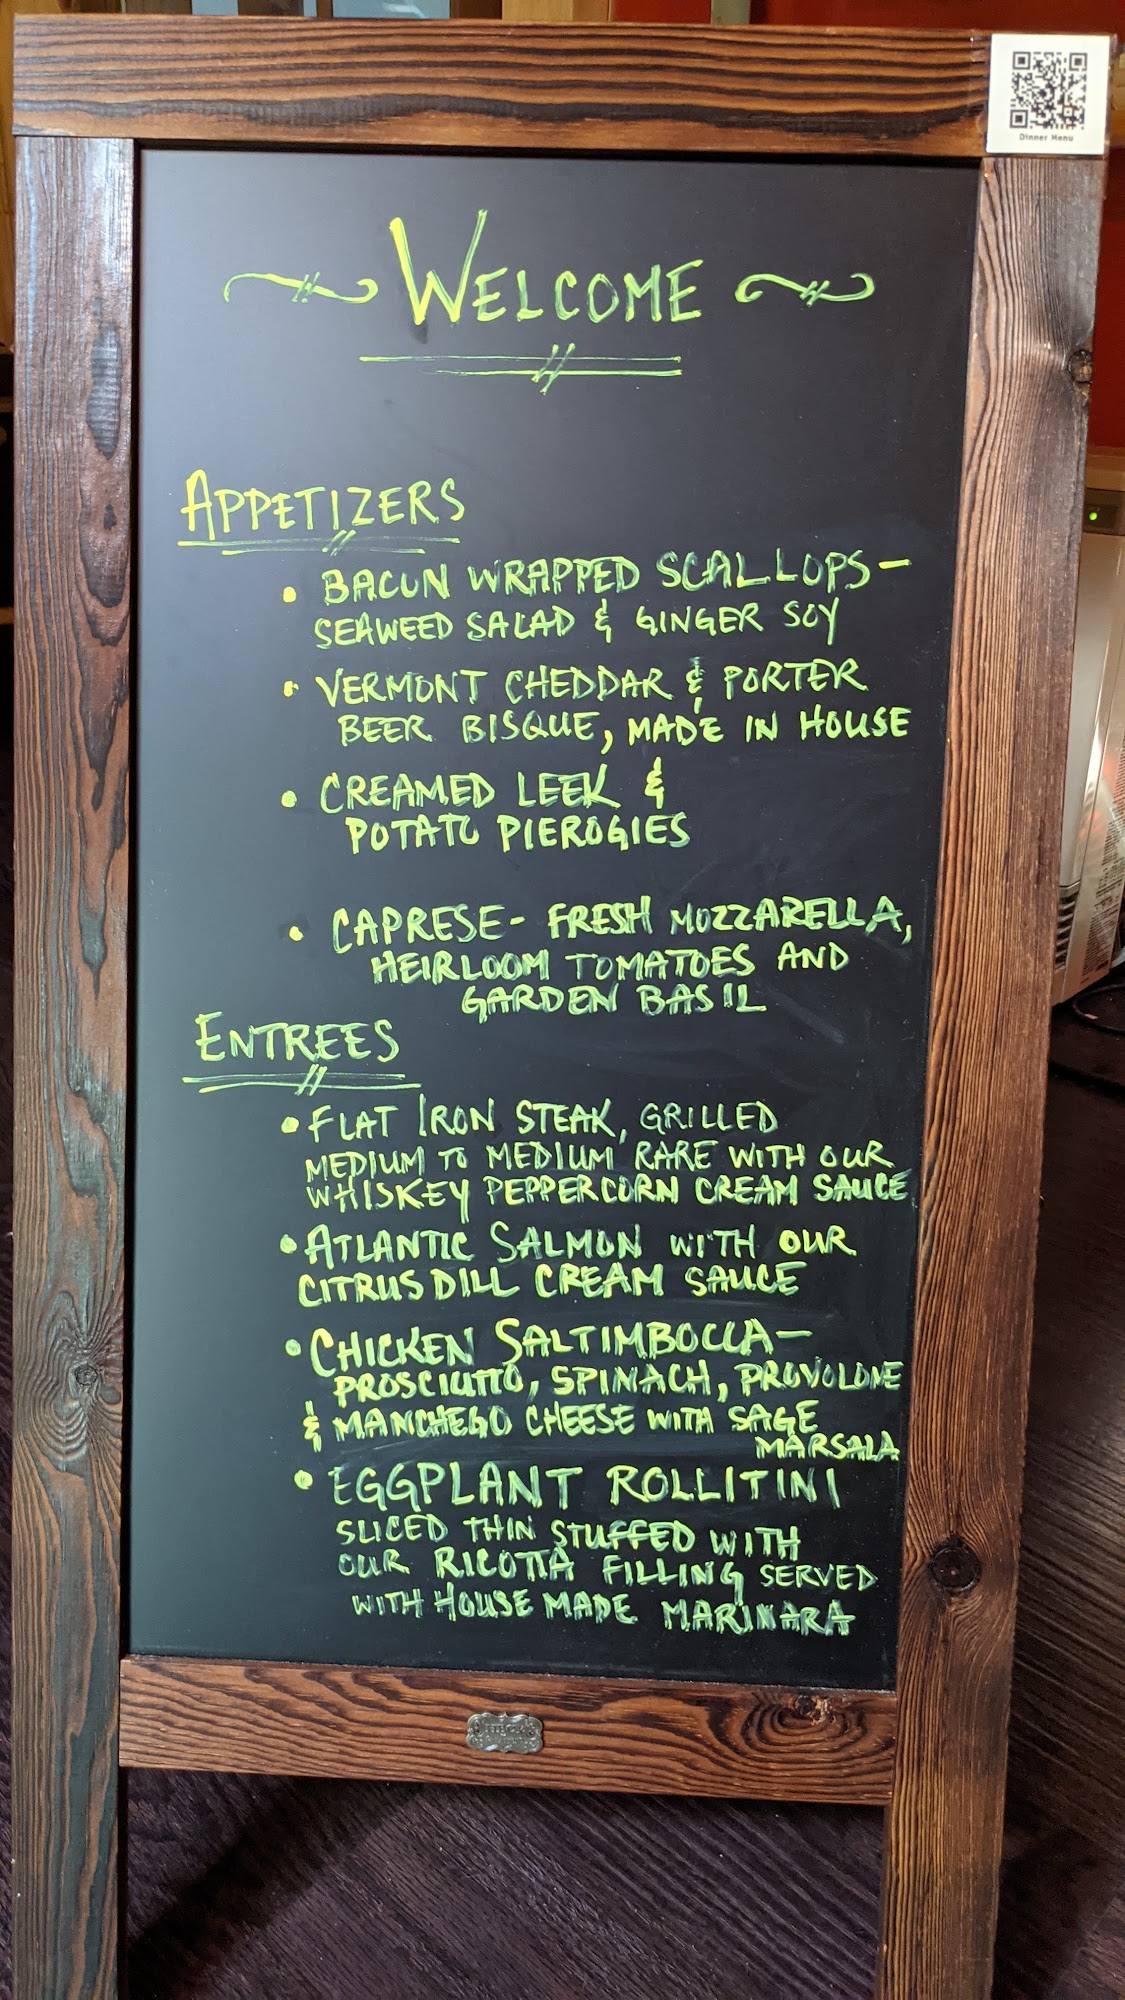 Dinner Menu
WELCOME
APPETIZERS
• BACON WRAPPED SCALLOPS -
SEAWEED SALAD & GINGER SOY
• VERMONT CHEDDAR & PORTER
BEER BISQUE, MADE IN HOUSE
• CREAMED LEEK &
POTATO PIEROGIES
• CAPRESE - FRESH MOZZARELLA,
HEIRLOOM TOMATOES AND
GARDEN BASIL
ENTREES
• FLAT IRON STEAK, GRILLED
MEDIUM TO MEDIUM RARE WITH OUR
WHISKEY PEPPERCORN CREAM SAUCE
• ATLANTIC SALMON WITH OUR
CITRUS DILL CREAM SAUCE
• CHICKEN SALTIMBOCCA -
PROSCIUTTO, SPINACH, PROVOLONE
& MANCHEGO CHEESE WITH SAGE
MARSALA
• EGGPLANT ROLLITINI
SLICED THIN STUFFED WITH
OUR RICOTTA FILLING SERVED
WITH HOUSE MADE MARINARA